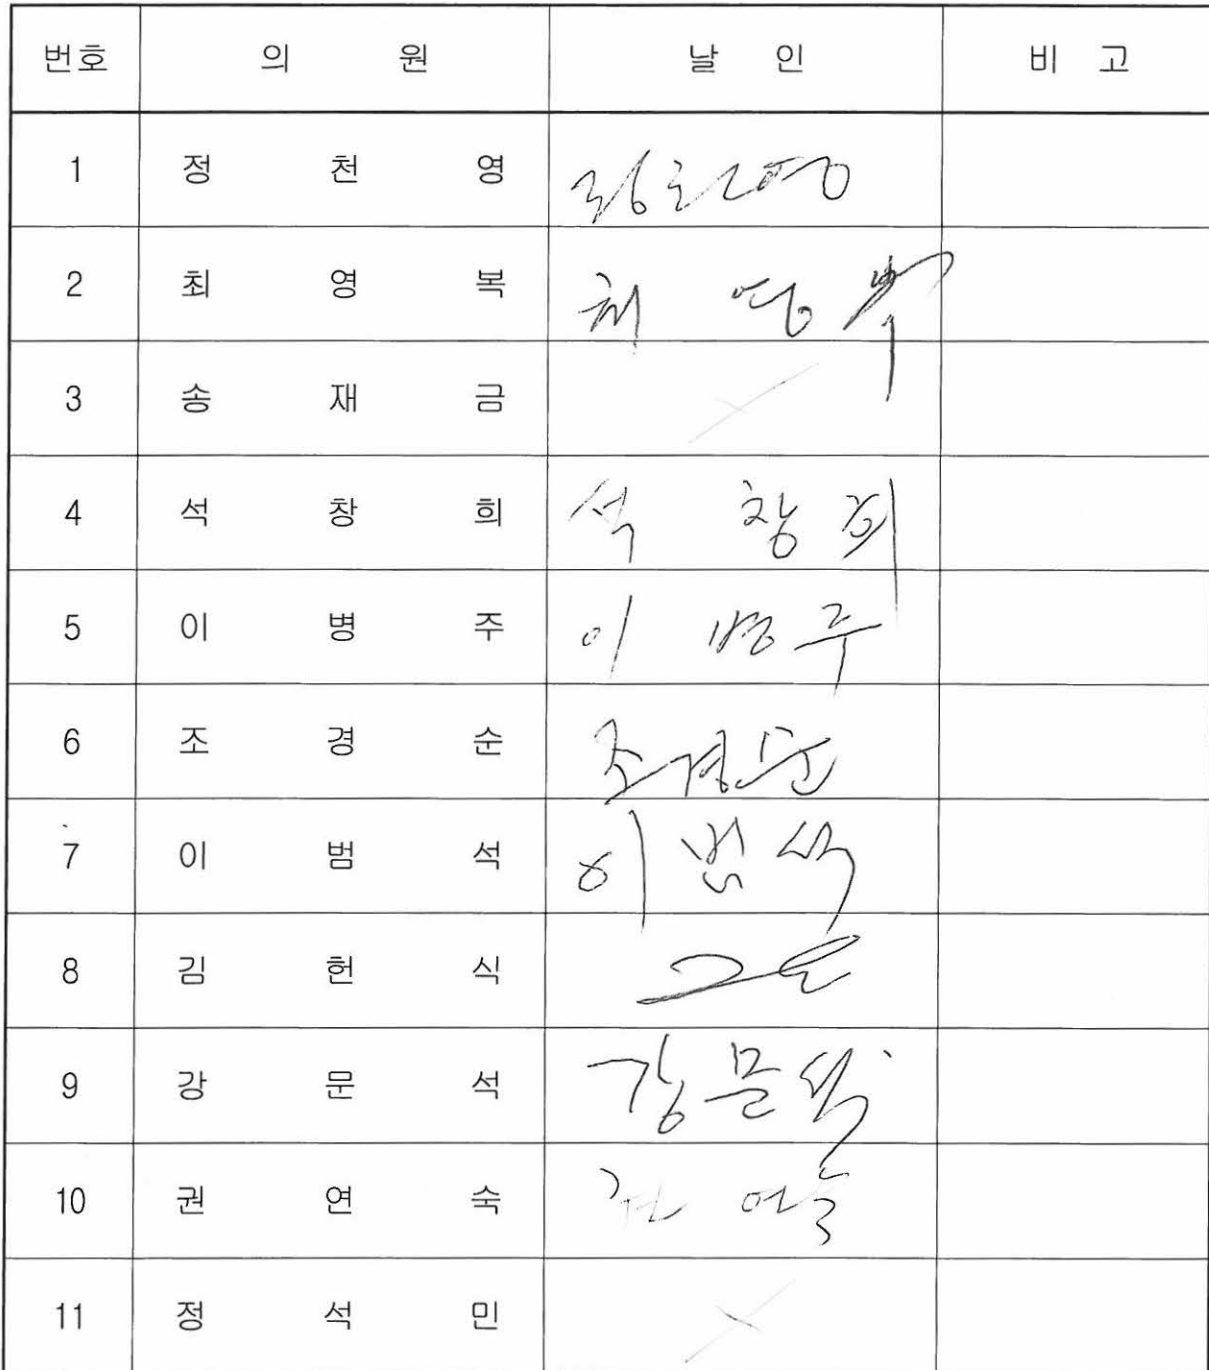 번호 의 원 날 인 비 고
1 정 천 영 정천영
2 최 영 복 최 영 복
3 송 재 금
4 석 창 희 석 창 희
5 이 병 주 이 병 주
6 조 경 순 조경순
7 이 범 석 이 범 석
8 김 헌 식
9 강 문 석 강 문 석
10 권 연 숙 권 연숙
11 정 석 민